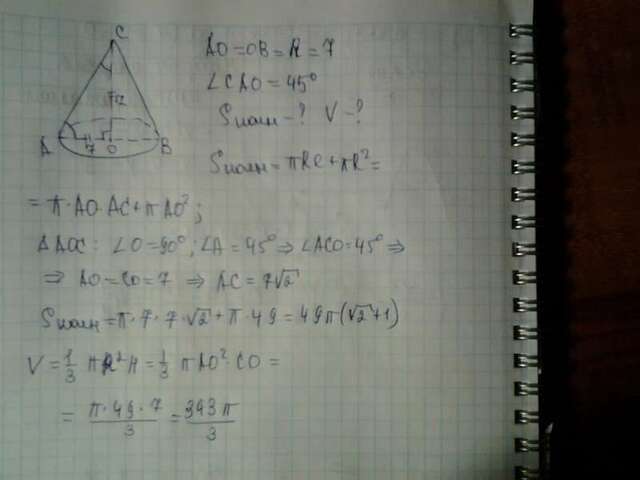 C
A
7
O
B
AO = OB = R = 7
∠CAO = 45°
Sполн - ? V - ?
Sполн = πRl + πR² =
= π · AO · AC + πAO² ;
ΔAOC : ∠O = 90° ; ∠A = 45° ⇒ ∠ACO = 45° ⇒
⇒ AO = CO = 7 ⇒ AC = 7√2
Sполн = π · 7 · 7 · √2 + π · 49 = 49π(√2 + 1)
V = 1/3 πR²H = 1/3 πAO² · CO =
= π · 49 · 7 / 3 = 343π / 3